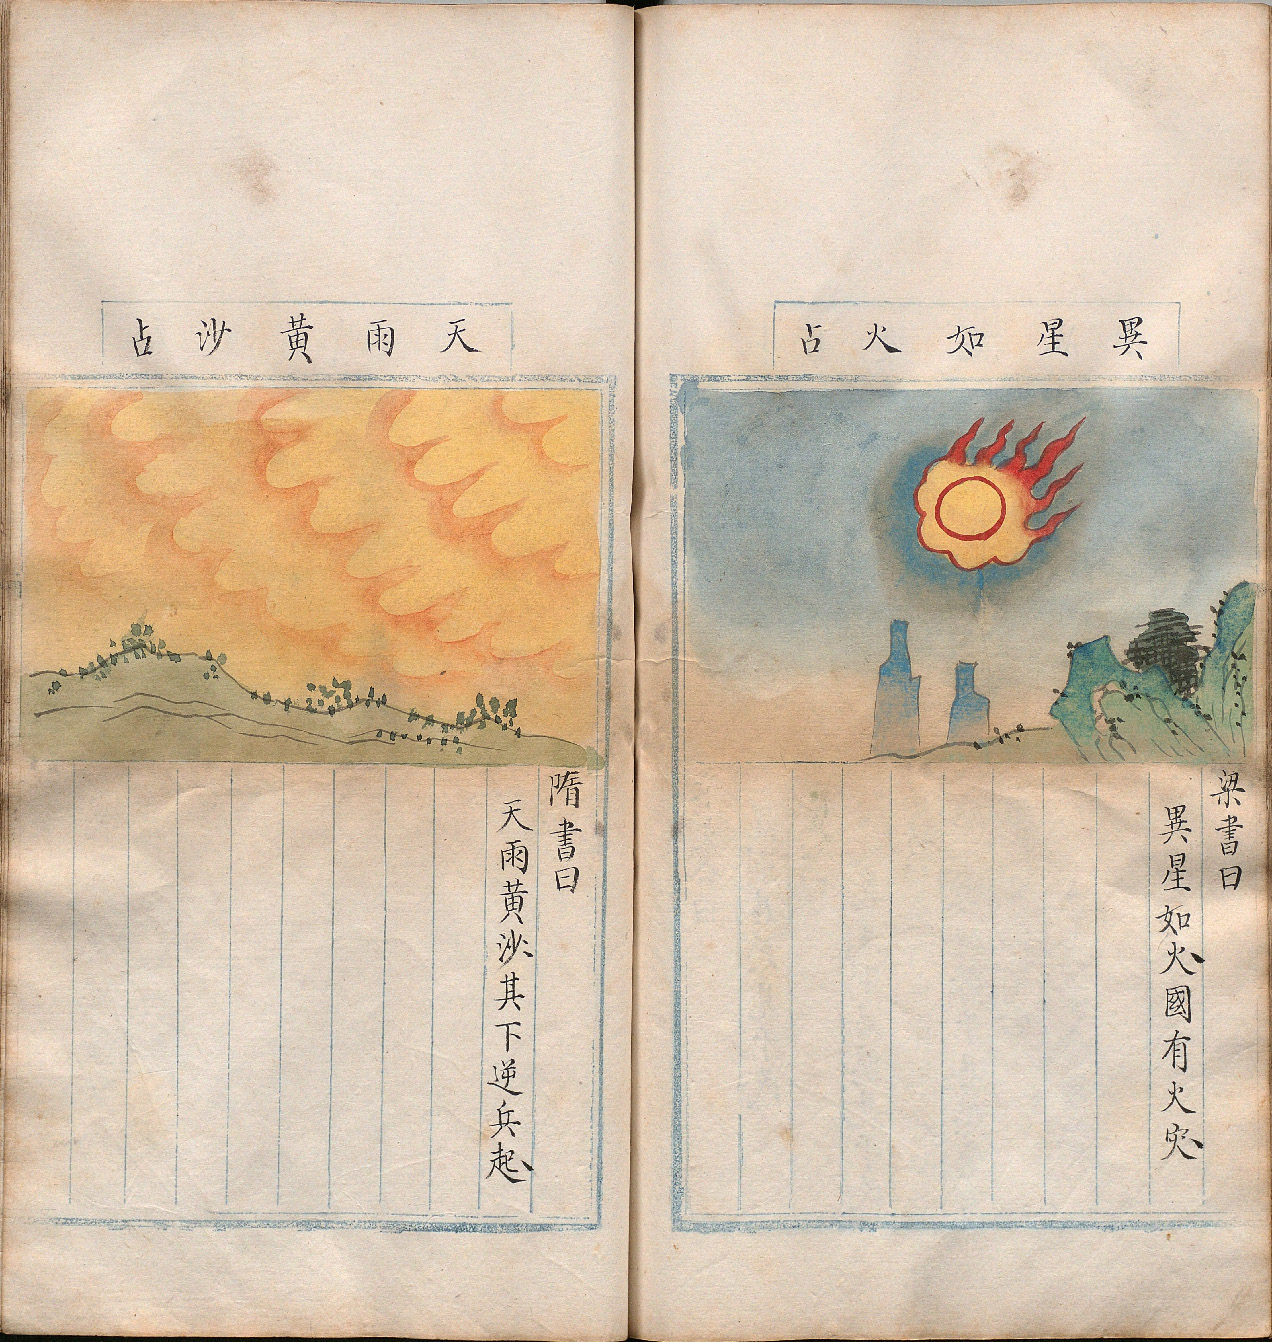 異星如火占
梁書曰
異星如火國有火灾
天雨黃沙占
隋書曰
天雨黃沙其下逆兵起